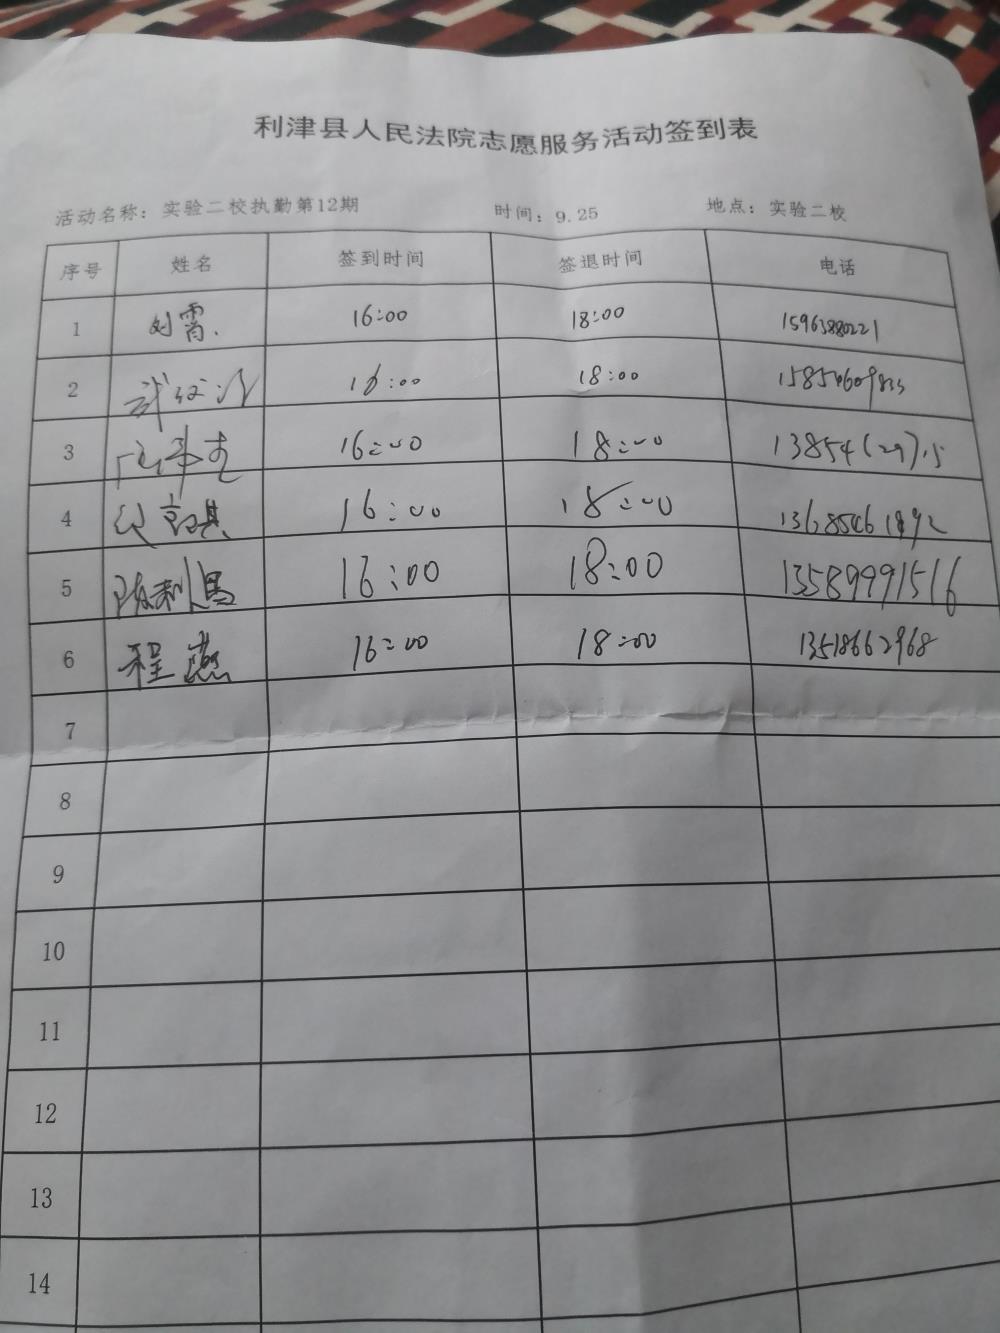 利津县人民法院志愿服务活动签到表
活动名称：实验二校执勤第12期 时间：9.25 地点：实验二校
序号 姓名 签到时间 签退时间 电话
1 刘霄 16:00 18:00 15963880221
2 16:00 18:00
3 16:00 18:00
4 16:00 18:00 13685461892
5 16:00 18:00 13589991516
6 程燕 16:00 18:00 13518662968
7
8
9
10
11
12
13
14